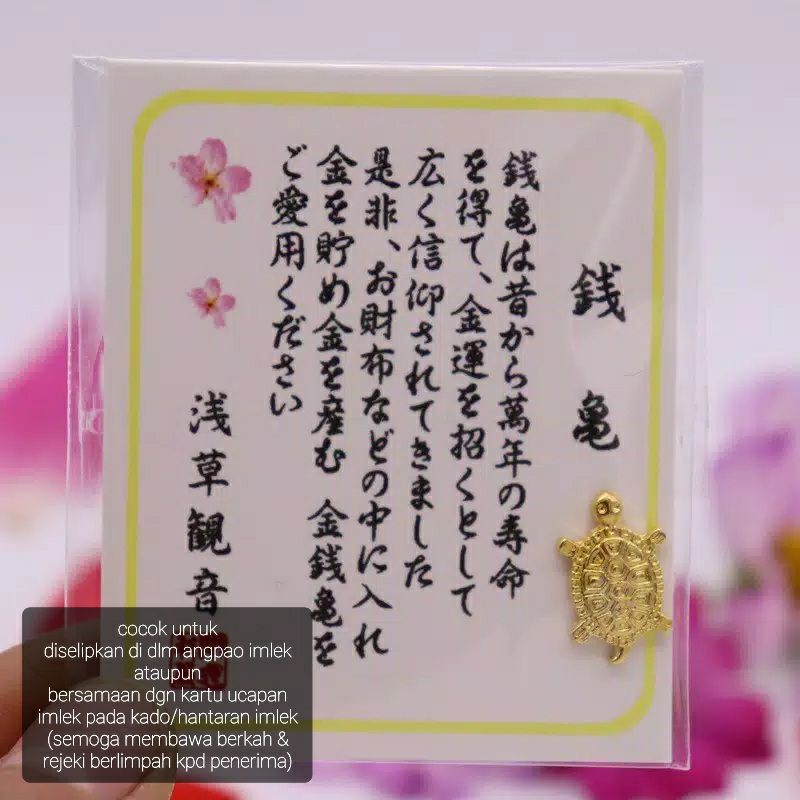 銭亀
銭亀は昔から萬年の寿命
を得て、金運を招くとして
広く信仰されてきました
是非、お財布などの中に入れ
金を貯め金を産む 金銭亀を
ご愛用ください
浅草観音
cocok untuk
diselipkan di dlm angpao imlek
ataupun
bersamaan dgn kartu ucapan
imlek pada kado/hantaran imlek
(semoga membawa berkah &
rejeki berlimpah kpd penerima)